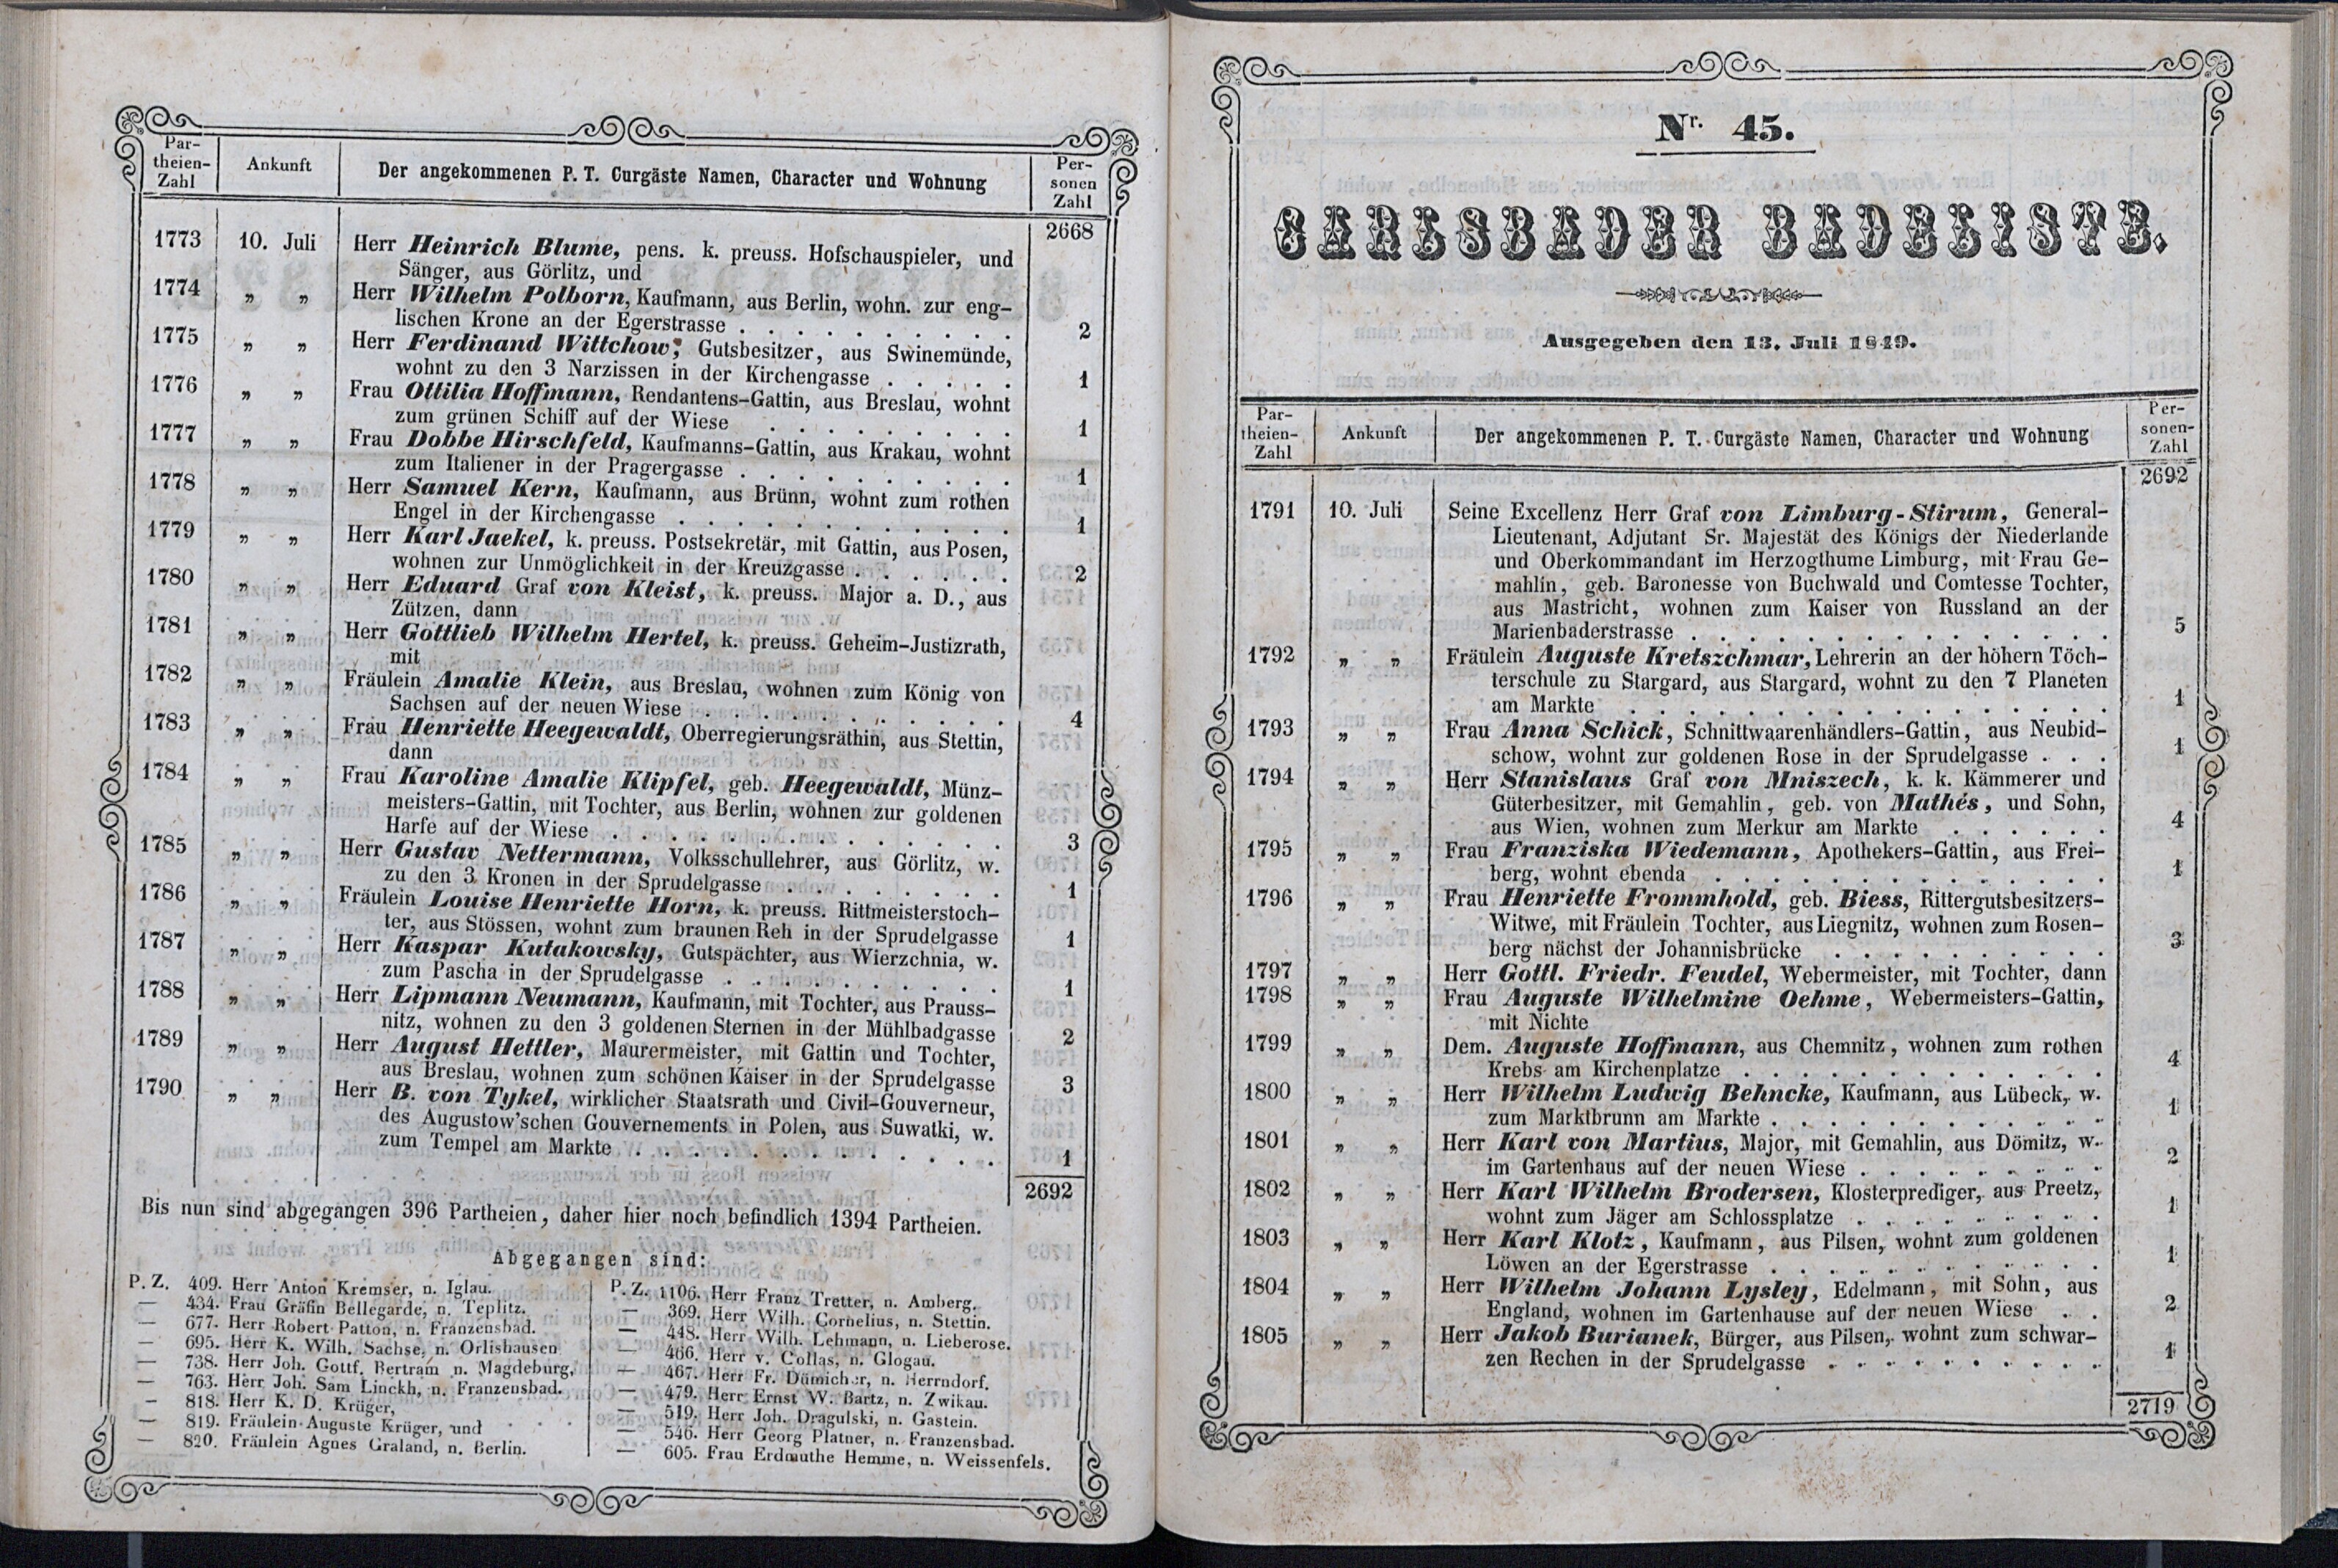 Par-
theien-
Zahl
Ankunft
Der angekommenen P. T. Curgäste Namen, Character und Wohnung
Per-
sonen
Zahl
2668
1773 10. Juli Herr Heinrich Blume, pens. k. preuss. Hofschauspieler, und
Sänger, aus Görlitz, und
1774 „ „ Herr Wilhelm Polborn, Kaufmann, aus Berlin, wohn. zur eng-
lischen Krone an der Egerstrasse . . . . . . . . . . 2
1775 „ „ Herr Ferdinand Wittchow, Gutsbesitzer, aus Swinemünde,
wohnt zu den 3 Narzissen in der Kirchengasse . . . . . 1
1776 „ „ Frau Ottilia Hoffmann, Rendantens-Gattin, aus Breslau, wohnt
zum grünen Schiff auf der Wiese . . . . . . . . . 1
1777 „ „ Frau Dobbe Hirschfeld, Kaufmanns-Gattin, aus Krakau, wohnt
zum Italiener in der Pragergasse . . . . . . . . . . 1
1778 „ „ Herr Samuel Kern, Kaufmann, aus Brünn, wohnt zum rothen
Engel in der Kirchengasse . . . . . . . . . . . . 1
1779 „ „ Herr Karl Jaekel, k. preuss. Postsekretär, mit Gattin, aus Posen,
wohnen zur Unmöglichkeit in der Kreuzgasse . . . . . . 2
1780 „ „ Herr Eduard Graf von Kleist, k. preuss. Major a. D., aus
Zützen, dann
1781 „ „ Herr Gottlieb Wilhelm Hertel, k. preuss. Geheim-Justizrath,
mit
1782 „ „ Fräulein Amalie Klein, aus Breslau, wohnen zum König von
Sachsen auf der neuen Wiese . . . . . . . . . . . 4
1783 „ „ Frau Henriette Heegewaldt, Oberregierungsräthin, aus Stettin,
dann
1784 „ „ Frau Karoline Amalie Klipfel, geb. Heegewaldt, Münz-
meisters-Gattin, mit Tochter, aus Berlin, wohnen zur goldenen
Harfe auf der Wiese . . . . . . . . . . . . . . 3
1785 „ „ Herr Gustav Nettermann, Volksschullehrer, aus Görlitz, w.
zu den 3 Kronen in der Sprudelgasse . . . . . . . . 1
1786 „ „ Fräulein Louise Henriette Horn, k. preuss. Rittmeisterstoch-
ter, aus Stössen, wohnt zum braunen Reh in der Sprudelgasse 1
1787 „ „ Herr Kaspar Kutakowsky, Gutspächter, aus Wierzchnia, w.
zum Pascha in der Sprudelgasse . . . . . . . . . . 1
1788 „ „ Herr Lipmann Neumann, Kaufmann, mit Tochter, aus Prauss-
nitz, wohnen zu den 3 goldenen Sternen in der Mühlbadgasse 2
1789 „ „ Herr August Hettler, Maurermeister, mit Gattin und Tochter,
aus Breslau, wohnen zum schönen Kaiser in der Sprudelgasse 3
1790 „ „ Herr B. von Tykel, wirklicher Staatsrath und Civil-Gouverneur,
des Augustow'schen Gouvernements in Polen, aus Suwalki, w.
zum Tempel am Markte . . . . . . . . . . . . . 1
2692
Bis nun sind abgegangen 396 Partheien, daher hier noch befindlich 1394 Partheien.
Abgegangen sind:
P. Z. 409. Herr Anton Kremser, n. Iglau.
— 434. Frau Gräfin Bellegarde, n. Teplitz.
— 677. Herr Robert Patton, n. Franzensbad.
— 695. Herr K. Wilh. Sachse, n. Orlishausen
— 738. Herr Joh. Gottf. Bertram n. Magdeburg,
— 763. Herr Joh. Sam Linckh, n. Franzensbad.
— 818. Herr K. D. Krüger,
— 819. Fräulein Auguste Krüger, und
— 820. Fräulein Agnes Graland, n. Berlin.
P. Z. 1106. Herr Franz Tretter, n. Amberg.
— 369. Herr Wilh. Cornelius, n. Stettin.
— 448. Herr Wilh. Lehmann, n. Lieberose.
— 466. Herr v. Collas, n. Glogau.
— 467. Herr Fr. Dümicher, n. Herrndorf.
— 479. Herr Ernst W. Bartz, n. Zwikau.
— 519. Herr Joh. Dragulski, n. Gastein.
— 546. Herr Georg Platner, n. Franzensbad.
— 605. Frau Erdmuthe Hemme, n. Weissenfels.
Nr. 45.
CARLSBADER BADELISTE.
Ausgegeben den 13. Juli 1849.
Par-
theien-
Zahl
Ankunft
Der angekommenen P. T. Curgäste Namen, Character und Wohnung
Per-
sonen-
Zahl
2692
1791 10. Juli Seine Excellenz Herr Graf von Limburg-Stirum, General-
Lieutenant, Adjutant Sr. Majestät des Königs der Niederlande
und Oberkommandant im Herzogthume Limburg, mit Frau Ge-
mahlin, geb. Baronesse von Buchwald und Comtesse Tochter,
aus Mastricht, wohnen zum Kaiser von Russland an der
Marienbaderstrasse . . . . . . . . . . . . . . 5
1792 „ „ Fräulein Auguste Kretszchmar, Lehrerin an der höhern Töch-
terschule zu Stargard, aus Stargard, wohnt zu den 7 Planeten
am Markte . . . . . . . . . . . . . . . . 1
1793 „ „ Frau Anna Schick, Schnittwaarenhändlers-Gattin, aus Neubid-
schow, wohnt zur goldenen Rose in der Sprudelgasse . . . 1
1794 „ „ Herr Stanislaus Graf von Mniszech, k. k. Kämmerer und
Güterbesitzer, mit Gemahlin, geb. von Mathés, und Sohn,
aus Wien, wohnen zum Merkur am Markte . . . . . . 4
1795 „ „ Frau Franziska Wiedemann, Apothekers-Gattin, aus Frei-
berg, wohnt ebenda . . . . . . . . . . . . . 1
1796 „ „ Frau Henriette Frommhold, geb. Biess, Rittergutsbesitzers-
Witwe, mit Fräulein Tochter, aus Liegnitz, wohnen zum Rosen-
berg nächst der Johannisbrücke . . . . . . . . . 3
1797 „ „ Herr Gottl. Friedr. Feudel, Webermeister, mit Tochter, dann
1798 „ „ Frau Auguste Wilhelmine Oehme, Webermeisters-Gattin,
mit Nichte
1799 „ „ Dem. Auguste Hoffmann, aus Chemnitz, wohnen zum rothen
Krebs am Kirchenplatze . . . . . . . . . . . . 4
1800 „ „ Herr Wilhelm Ludwig Behncke, Kaufmann, aus Lübeck, w.
zum Marktbrunn am Markte . . . . . . . . . . . 1
1801 „ „ Herr Karl von Martius, Major, mit Gemahlin, aus Dömitz, w.
im Gartenhaus auf der neuen Wiese . . . . . . . . 2
1802 „ „ Herr Karl Wilhelm Brodersen, Klosterprediger, aus Preetz,
wohnt zum Jäger am Schlossplatze . . . . . . . . . 1
1803 „ „ Herr Karl Klotz, Kaufmann, aus Pilsen, wohnt zum goldenen
Löwen an der Egerstrasse . . . . . . . . . . . 1
1804 „ „ Herr Wilhelm Johann Lysley, Edelmann, mit Sohn, aus
England, wohnen im Gartenhause auf der neuen Wiese . . 2
1805 „ „ Herr Jakob Burianek, Bürger, aus Pilsen, wohnt zum schwar-
zen Rechen in der Sprudelgasse . . . . . . . . . . 1
2719